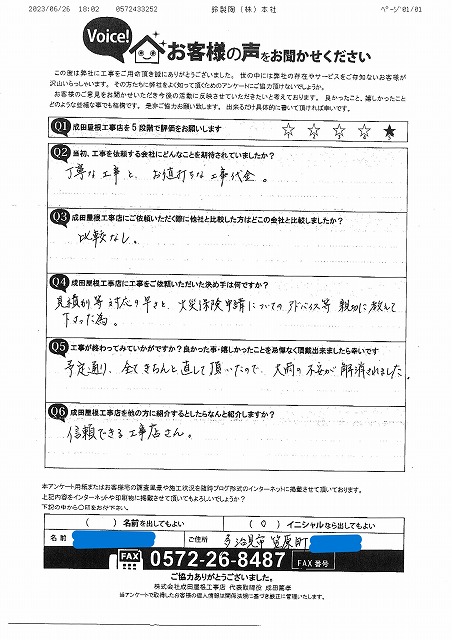 2023/06/26 18:02 0572433252 鈴製陶(株)本社 ページ01/01
Voice!
お客様の声をお聞かせください
この度は弊社に工事をご用命頂き誠にありがとうございました。世の中には弊社の存在やサービスをご存知ないお客様が
沢山いらっしゃいます。その方たちに弊社をよく知って頂くためのアンケートにご協力頂けないでしょうか。
お客様のご意見をお聞かせいただき今後の活動に反映させていただきたいと考えております。良かったこと、嬉しかったこと
どのような些細な事でも結構です。是非ご協力お願い致します。出来るだけ具体的に書いて頂ければ幸いです。
Q1 成田屋根工事店を5段階で評価をお願いします ☆ ☆ ☆ ☆ ★
Q2 当初、工事を依頼する会社にどんなことを期待されていましたか?
丁寧な工事と、お値打ちな工事代金。
Q3 成田屋根工事店にご依頼いただく際に他社と比較した方はどこの会社と比較しましたか?
比較なし。
Q4 成田屋根工事店に工事をご依頼いただいた決め手は何ですか?
見積別等対応の早さと、火災保険申請についてのアドバイス等親切に教えて
下さった為。
Q5 工事が終わってみていかがですか?良かった事・嬉しかったことを忌憚なく頂戴出来ましたら幸いです
予定通り、全てきちんと直して頂いたので、大雨の不安が解消されました。
Q6 成田屋根工事店を他の方に紹介するとしたらなんと紹介しますか?
信頼できる工事店さん。
本アンケート用紙またはお客様宅の調査風景や施工状況を随時ブログ形式のインターネットに掲載させて頂いております。
上記内容をインターネットや印刷物に掲載させて頂いてもよろしいでしょうか?
下記の中から〇印をお付け下さい。
( ) 名前を出してもよい ( 〇 ) イニシャルなら出してもよい
名前 ご住所 多治見市笠原町
FAX 0572-26-8487 FAX番号
ご協力ありがとうございました。
株式会社成田屋根工事店 代表取締役 成田崇孝
当アンケートで取得したお客様の個人情報は関係法規に基づき厳正に管理いたします。